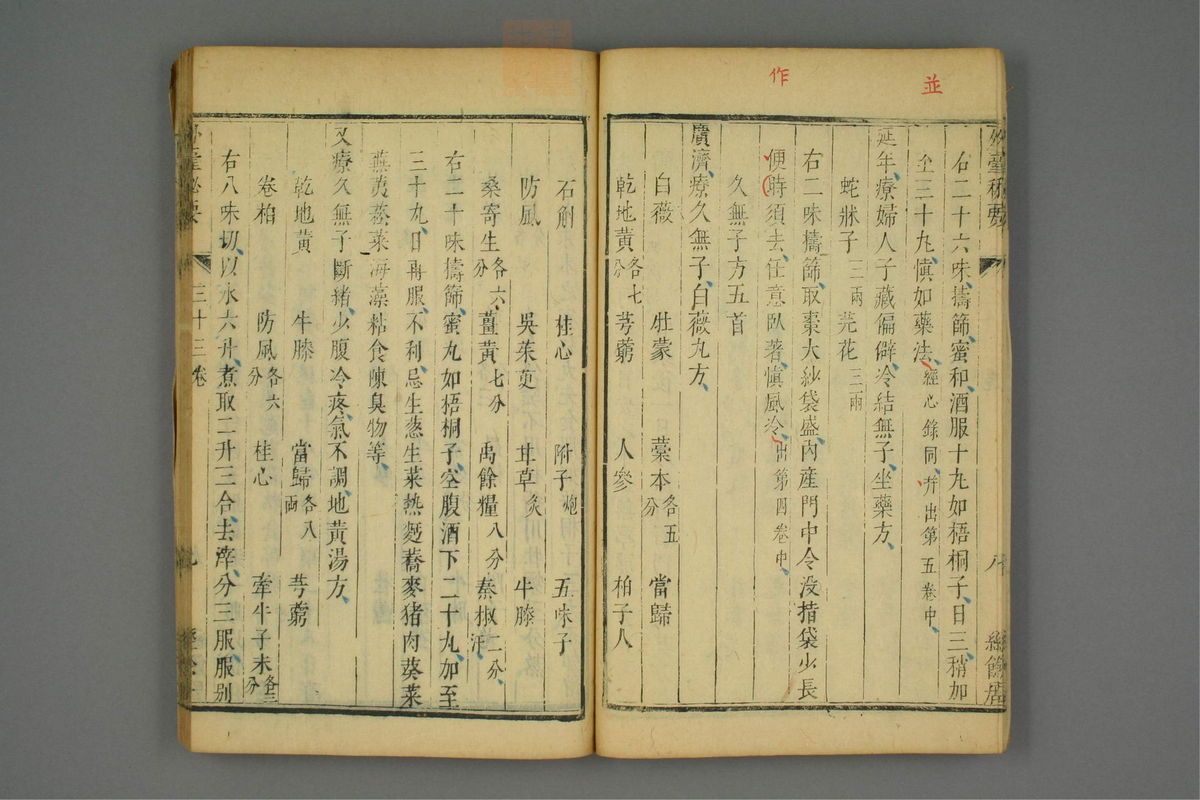 並
作
外臺秘要
八
經餘居
右二十六味擣篩蜜和酒服十丸如梧桐子日三稍加
至三十丸慎如藥法經心錄同并出第五卷中
延年療婦人子藏偏僻冷結無子坐藥方
蛇牀子三兩 芫花三兩
右二味擣篩取棗大紗袋盛內產門中令沒指袋少長
便時須去任意臥著慎風冷出第四卷中
久無子方五首
廣濟療久無子白薇丸方
白薇 牡蒙 藁本各五分 當歸
乾地黃各七分 芎藭 人參 柏子人
石斛 桂心 附子炮 五味子
防風 吳茱萸 甘草炙 牛膝
桑寄生各六分 薑黃七分 禹餘糧八分 秦椒二分汗
右二十味擣篩蜜丸如梧桐子空腹酒下二十丸加至
三十丸日再服不利忌生葱生菜熱麪蕎麥猪肉葵菜
蕪荑菘菜海藻粘食陳臭物等
又療久無子斷緒少腹冷疼氣不調地黃湯方
乾地黃 牛膝 當歸各八兩 芎藭
卷柏 防風各六分 桂心 牽牛子末各三分
右八味切以水六升煮取二升三合去滓分三服服别
外臺祕要
三十三卷
九